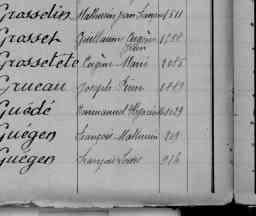 Grosselin Mathurin Jean François 1511
Grosset Guillaume Eugène 1188
Jean
Grossetete Eugène Marie 2085
Grueau Joseph Pierre 1889
Guédé Emmanuel Hyacinthe 1029
Guegen François Mathurin 209
Guegen François Louis 916